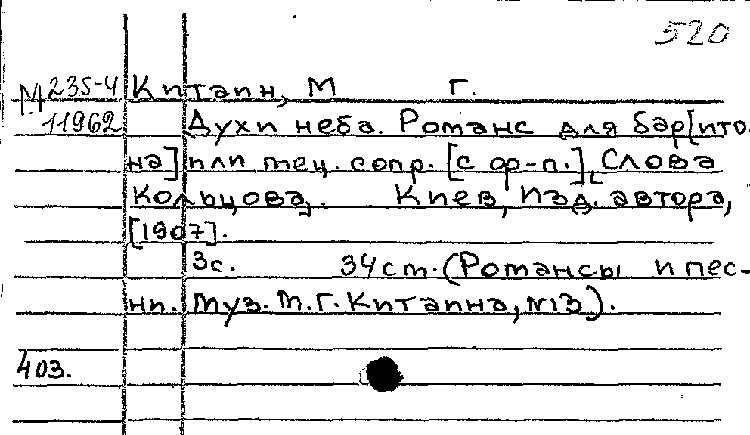 520
М 235-4 Китаин, М Г.
11962 Духи неба. Романс для бар[ито-
на] или тец. сопр. [с ор-п.], Слова
Кольцова,. Киев, Изд. автора,
[1907].
3с. 34 ст. (Романсы и пес-
ни. Муз. М.Г. Китаина, №13).
403.